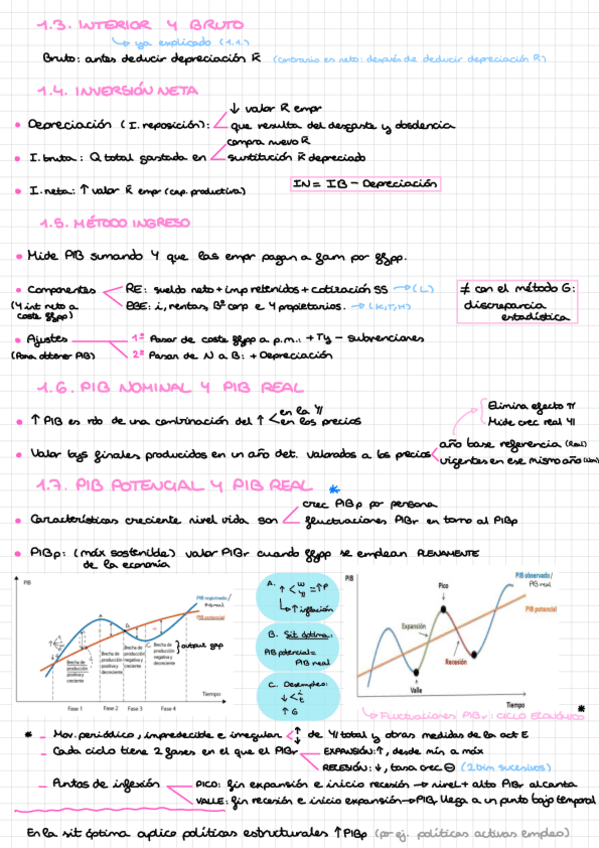 1.3. INTERIOR Y BRUTO
↳ ya explicado (1.1.)
Bruto: antes deducir depreciación K̄ (contrario es neto: después de deducir depreciación K)
1.4. INVERSIÓN NETA
• Depreciación (I. reposición): ↓ valor K empr
que resulta del desgaste y obsolencia
• I. bruta: Q total gastada en compra nuevo K
sustitución K depreciado
• I. neta: ↑ valor K empr (cap. productiva)
IN = IB − Depreciación
1.5. MÉTODO INGRESO
• Mide PIB sumando Y que las empr pagan a fam por ffpp.
• Componentes
(Y int neto a coste ffpp)
RE: sueldo neto + imp retenidos + cotización SS → (L)
EBE: i, rentas, Bº corp e Y propietarios. → (K,T,H)
≠ con el método G:
discrepancia
estadística
• Ajustes
(Para obtener PIB)
1º Pasar de coste ffpp a p.m.: + Ty − subvenciones
2º Pasar de N a B: + Depreciación
1.6. PIB NOMINAL Y PIB REAL
• ↑ PIB es rdo de una combinación del ↑ en la Y
en los precios
Elimina efecto π
Mide crec real Y
• Valor bys finales producidos en un año det. valorados a los precios
año base referencia (Real)
vigentes en ese mismo año (Nom)
1.7. PIB POTENCIAL Y PIB REAL *
• Características creciente nivel vida son
crec PIBp por persona
fluctuaciones PIBr en torno al PIBp
• PIBp: (máx sostenible) valor PIBr cuando ffpp se emplean PLENAMENTE
de la economía
PIB
PIB registrado /
PIB real
PIB potencial
Brecha de producción positiva y creciente
Brecha de producción positiva y decreciente
Brecha de producción negativa y creciente
Brecha de producción negativa y decreciente
output gap
Tiempo
Fase 1 Fase 2 Fase 3 Fase 4
A. ↑ < W = ↑P
↳ ↑ inflación
B. Sit óptima:
PIB potencial =
PIB real
C. Desempleo:
↓ < i
t
↑ G
PIB
PIB observado /
PIB real
PIB potencial
Pico
Expansión
Recesión
Valle
Tiempo
↳ Fluctuaciones PIBr: CICLO ECONÓMICO *
* − Mov. periódico, impredecible e irregular ↑ ↓ de Y total y otras medidas de la act E
− Cada ciclo tiene 2 fases en el que el PIBr
EXPANSIÓN: ↑, desde mín a máx
RECESIÓN: ↓, tasa crec ⊖ (2 trim sucesivos)
− Puntos de inflexión
PICO: fin expansión e inicio recesión → nivel + alto PIBr alcanza
VALLE: fin recesión e inicio expansión → PIBr llega a un punto bajo temporal
En la sit óptima aplico políticas estructurales ↑ PIBp (por ej. políticas activas empleo)